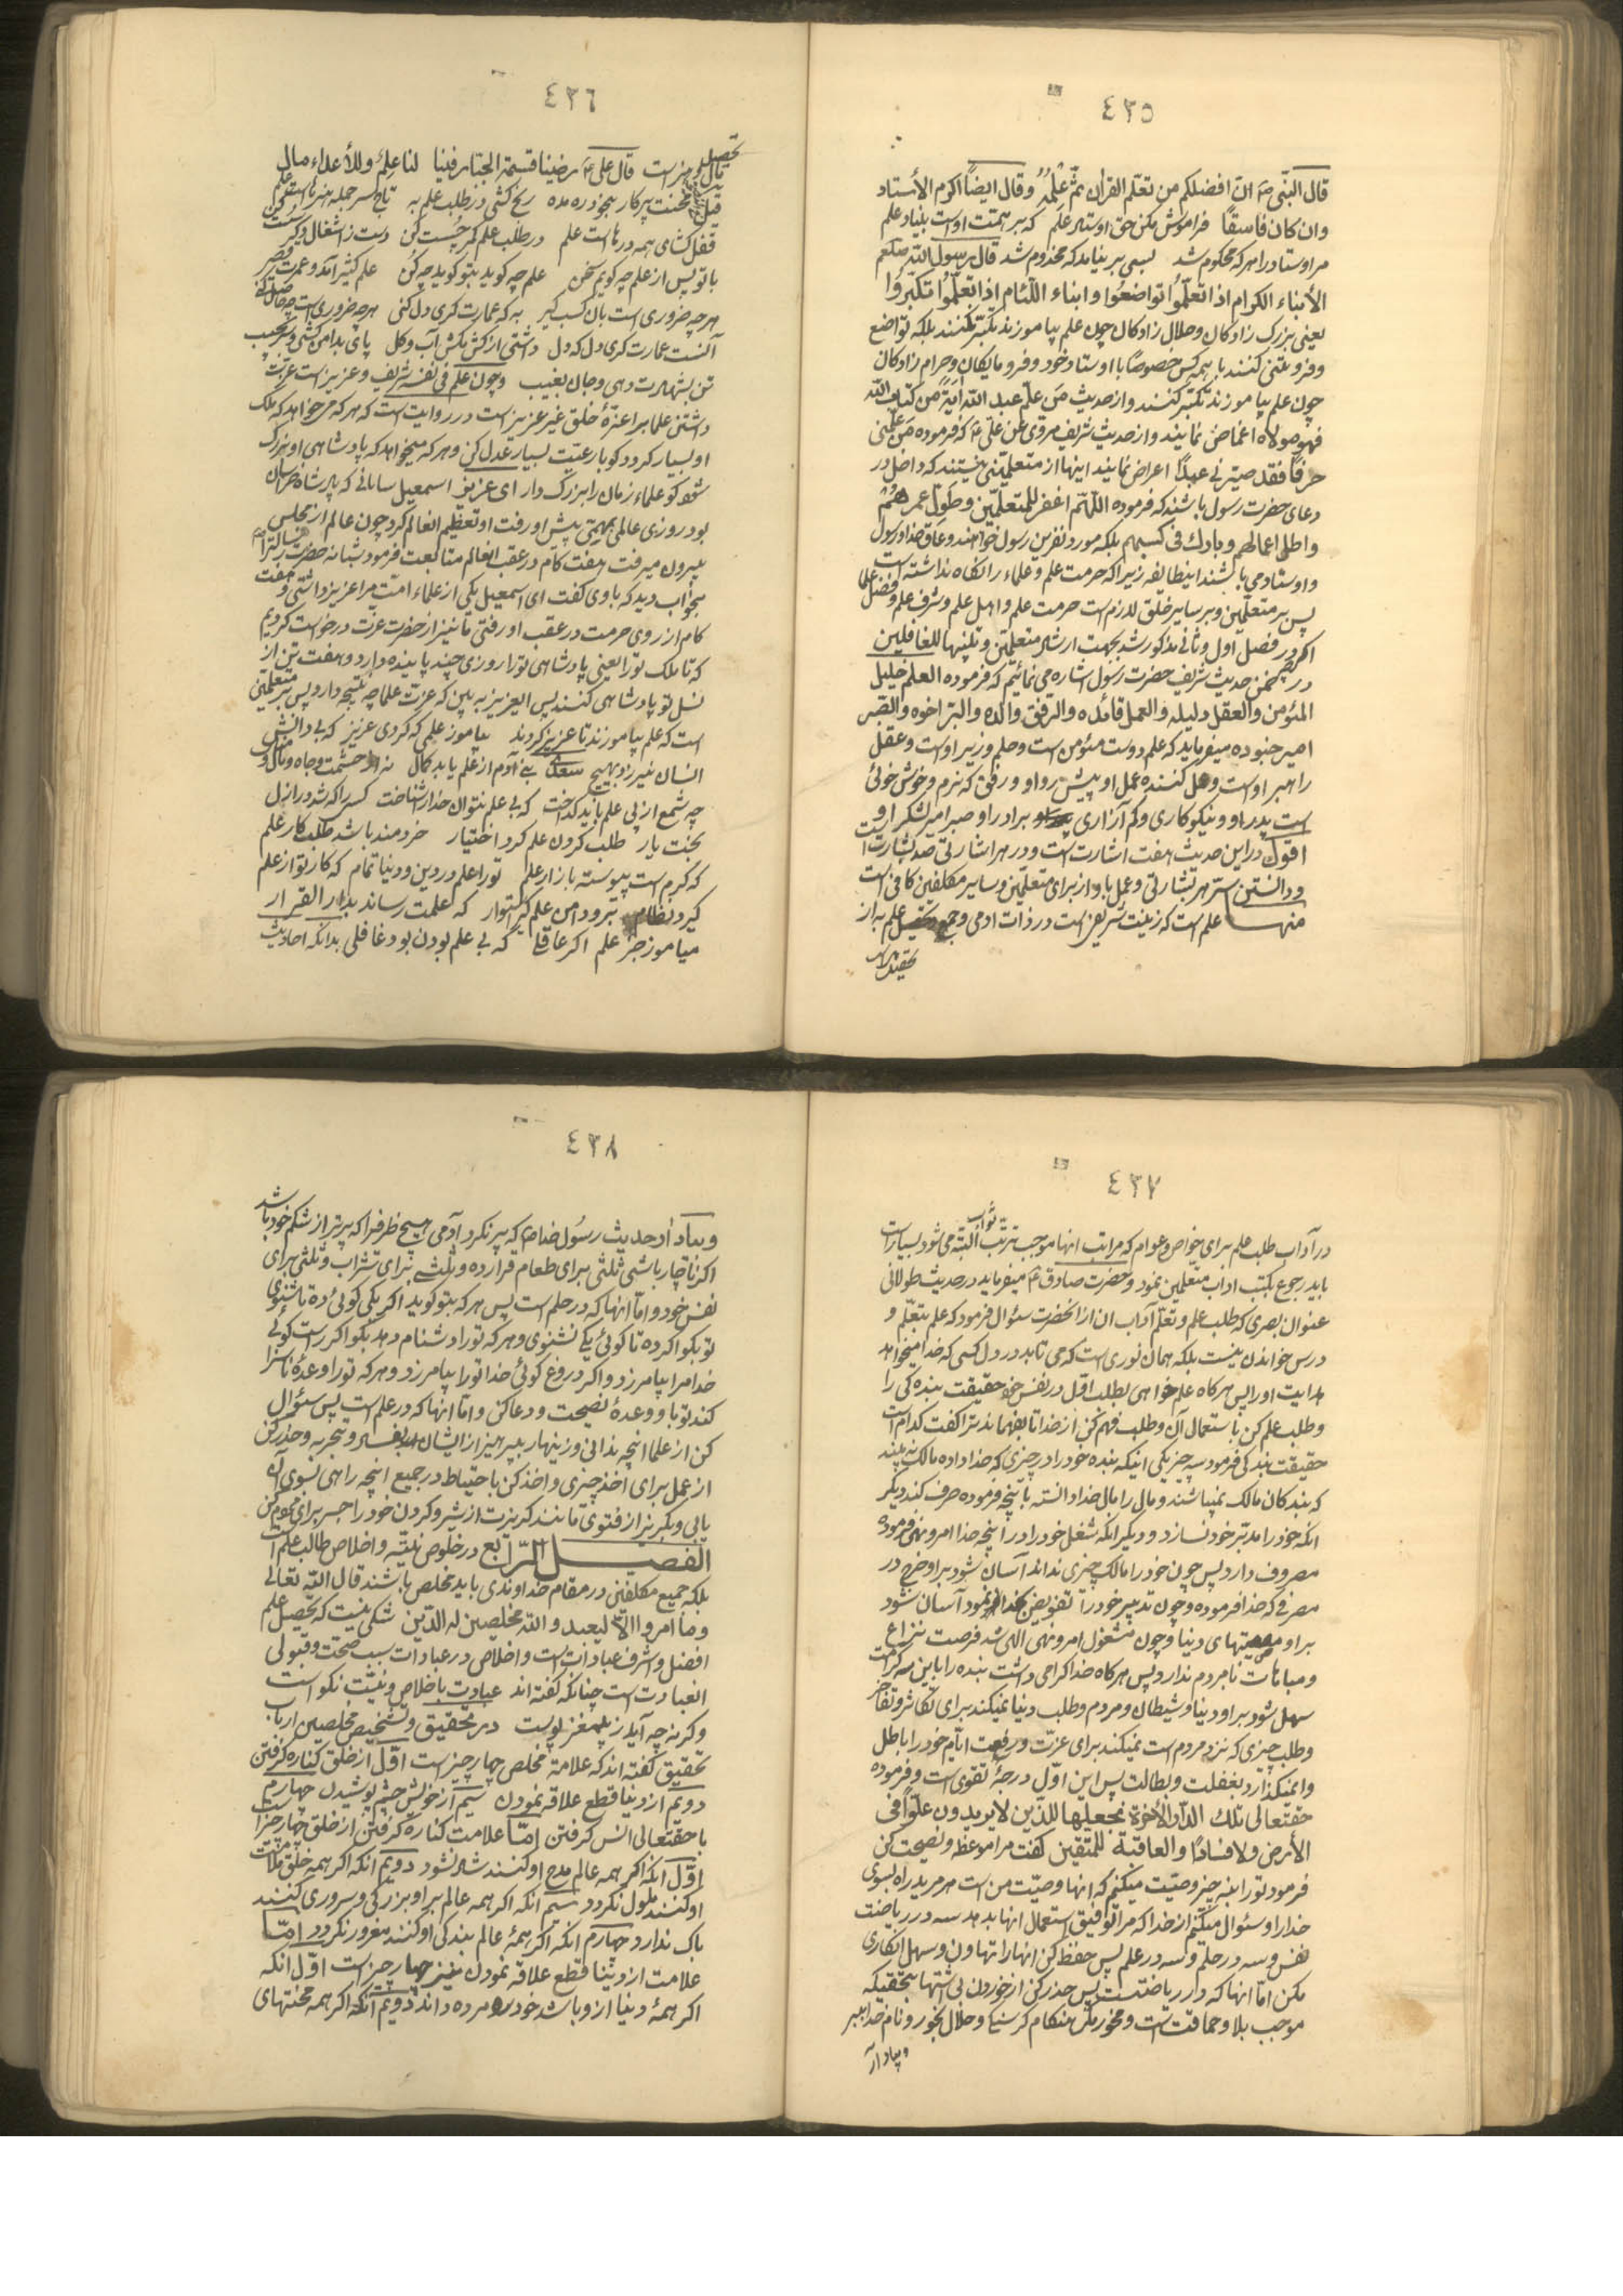 ٤٣٥
قال النّبی ص انّ افضلکم من تعلّم القران ثمّ علّمه وقال ایضاً اکرم الأستاد
وان کان فاسقًا فراموش مکن حق اوستاد علم که بر همّت اوست بنیاد علم
مر اوستاد را هر که محکوم شد بسی بر نیامد که مخدوم شد قال رسول اللّه صلعم
الأبناء الکرام اذا تعلّموا تواضعوا وابناء اللّئام اذا تعلّموا تکبّروا
یعنی بزرک زادکان وحلال زادکان چون علم بیاموزند تکبّر نکنند بلکه تواضع
وفروتنی کنند با همه کس خصوصًا با اوستاد خود وفرومایکان وحرام زادکان
چون علم بیاموزند تکبّر کنند واز حدیث من علّم عبدا آیةً من کتاب اللّه
فهو مولاه اغماض نمایند واز حدیث شریف مروی عن علی ع که فرموده من علّمنی
حرفًا فقد صیّرنی عبدًا اعراض نمایند اینها از متعلّمینی نیستند که داخل در
دعای حضرت رسول باشند که فرموده اللّهمّ اغفر للمتعلّمین وطوّل عمرهم
واظلّ اعمالهم وبارك فی کسبهم بلکه مورد نفرین رسول خواهند وعاق خدا ورسول
واوستاد می باشند اینطایفه زیرا که حرمت علم وعلماء را نکاه نداشته است
پس بر متعلّمین وبر سایر خلق لازم است حرمت علم واهل علم وشرف علم وفضل علما
اکر در فصل اول وثانی مذکور شد بجهت ارشاد متعلّمین وتنبیهًا للغافلین
در ضمن حدیث شریف حضرت رسول اشاره می نمائیم که فرموده العلم خلیل
المؤمن والعقل دلیله والعمل قائده والرّفق والده والبرّ اخوه والصّبر
امیر جنوده میفرماید که علم دوست مؤمن است وحلم وزیر اوست وعقل
راهبر اوست وعمل کننده عمل او پیش رو او ورفق که نرم وخوش خوئی
است پدر او ونیکوکاری وکم آزاری برادر او وصبر امیر لشکر او
اقول در این حدیث هفت اشارت است ودر هر اشارتی صد بشارت است
ودانستن سرّ هر بشارتی وعمل باو از برای متعلّمین وسایر مکلّفین کافی است
منها علم است که زینت شریفی است در ذات ادمی وجمع علم به از
٤٣٦
مال وهنر است قال علی ع رضینا قسمة الجبّار فینا لنا علم وللأعداء مال
رنج کشی در طلب علم به تاج سر جمله هنرهاست علم
قفل کشای همه درهاست علم در طلب علم کمر چُست کن دست ز اشغال دکر سست کن
با تو پس از علم چه کویم سخن علم چه کوید بتو کوید چه کن علم کثیر آمد وعمرت قصیر
هر چه ضروری است بان کسب کیر به که عمارت کری دل کنی
آنست عمارت کری دل که دل داشتی از کش مکش آب وکل پای بدامن کشی وسر بجیب
تن بشهادت دهی وجان بغیب وچون علم فی نفسه شریف وعزیز است عزّت
داشتن علما بر اعزّهٔ خلق غیر عزیز است در روایت است که هر که میخواهد که ملک
او بسیار کردد کو با رعیّت بسیار عدل کن وهر که میخواهد که پادشاهی او بزرک
شود کو علماء زمان را بزرک دار ای عزیز اسمعیل سامانی که پادشاه خراسان
بود روزی عالمی بمهمّی پیش او رفت او تعظیم انعالم کرد چون عالم از مجلس
بیرون میرفت هفت کام در عقب انعالم متابعت فرمود شبانه حضرت رسالت را
بخواب دید که با وی کفت ای اسمعیل یکی از علماء امّت مرا عزیز داشتی وهفت
کام از روی حرمت در عقب او رفتی ما نیز از حضرت عزّت درخواست کردیم
که تا ملک تو را یعنی پادشاهی تو را روزی چند پاینده دارد وهفت تن از
نسل تو پادشاهی کنند پس ایعزیز به بین که عزّت علما چه نتیجه دارد پس بر متعلّمین
است که علم بیاموزند تا عزیز کردند بیاموز علمی که کردی عزیز که بی دانش
انسان نیرزد بهیچ سعدی بنی آدم از علم یابد کمال نه از حشمت وجاه ومال ومنال
چه شمع از پی علم باید کداخت که بی علم نتوان خدا را شناخت کسی را که شد در ازل
بخت یار طلب کردن علم کرد اختیار خردمند باشد طلب کار علم
که کرم است پیوسته بازار علم تو را علم در دین ودنیا تمام که کار تو از علم
کیرد نظام برو دامن علم کیر استوار که علمت رساند بدار القرار
میاموز جز علم اکر عاقلی که بی علم بودن بود غافلی بدانکه احادیث
٤٣٧
در آداب طلب علم برای خواص وعوام که مراتب انها موجب ترتب ثواب البتّه می شود بسیار است
باید رجوع بکتب اداب متعلّمین نمود وحضرت صادق ع میفرماید در حدیث طولانی
عنوان بصری که طلب علم وتعلّم آداب ان از انحضرت سئوال فرمود که علم بتعلّم و
درس خواندن نیست بلکه همان نوری است که می تابد در دل کسی که خدا میخواهد
هدایت او را پس هر کاه علم خواهی بطلب اوّل در نفس خود حقیقت بنده کی را
وطلب علم کن باستعمال آن وطلب فهم کن از خدا تا بفهماند ترا کفت کدام است
حقیقت بندکی فرمود سه چیز یکی اینکه بنده خود را در چیزی که خدا داده مالک نه بیند
که بندکان مالک نمیباشند ومال را مال خدا دانسته بانچه فرموده صرف کند دیکر
انکه خود را مدبّر خود نسازد ودیکر انکه شغل خود را در انچه خدا امر ونهی فرموده
مصروف دارد پس چون خود را مالک چیزی نداند آسان شود بر او خرج در
مصرفی که خدا فرموده وچون تدبیر خود را تفویض بخدا نمود آسان شود
بر او مصیبتهای دنیا وچون مشغول امر ونهی الهی شد فرصت نزاع
ومباهات با مردم ندارد پس هر کاه خدا کرامی داشت بنده را باین سه کرامت
سهل شود بر او دنیا وشیطان ومردم وطلب دنیا نمیکند برای تکاثر وتفاخر
وطلب چیزی که نزد مردم است نمیکند برای عزّت ورفعت ایّام خود را باطل
وانمیکذارد بغفلت وبطالت پس این اوّل درجهٔ تقوی است وفرموده
حقتعالی تلك الدّار الأخرة نجعلها للّذین لا یریدون علوًّا فی
الأرض ولا فسادًا والعاقبة للمتّقین کفت مرا موعظه ونصیحت کن
فرمود تو را بنه چیز وصیّت میکنم که انها وصیّت من است هر مرید راه بسوی
خدا را وسئوال میکنم از خدا که مرا توفیق استعمال انها بدهد سه در ریاضت
نفس وسه در حلم وسه در علم پس حفظ کن انها را تهاون وسهل انکاری
مکن امّا انها که در ریاضتست پس حذر کن از خوردن بی اشتها بتحقیقکه
موجب بلا وحماقت است ومخور مکر هنکام کرسنکی وحلال بخور ونام خدا ببر
وبیاد آر
٤٣٨
وبیاد آر حدیث رسول خدا ص که پر نکرد آدمی هیچ ظرفرا که بدتر از شکم خود باشد
اکر ناچار باشی ثلثی برای طعام قرار ده وثلثی برای شراب وثلثی برای
نفس خود وامّا انها که در حلم است پس هر که بتو کوید اکر یکی کوئی ده تا شنوی
تو بکو اکر ده تا کوئی یکی نشنوی وهر که تو را دشنام دهد بکو اکر راست کوئی
خدا مرا بیامرزد واکر دروغ کوئی خدا تو را بیامرزد وهر که تو را وعدهٔ ناسزا
کند تو باو وعدهٔ نصیحت ودعا کن وامّا انها که در علم است پس سئوال
کن از علما انچه ندانی وزینهار بپرهیز از ایشان وتجربه وحذر کن
از عمل برای اخذ چیزی واخذ کن باحتیاط در جمیع انچه راهی بسوی آن
یابی وبکریز از فتوی مانند کریزت از شیر وکردن خود را جسر برای مردم مکن
الفصل الرّابع در خلوص نیّت واخلاص طالب علم است
بلکه جمیع مکلّفین در مقام خداوندی باید مخلص باشند قال اللّه تعالی
وما امروا الّا لیعبدوا اللّه مخلصین له الدّین شکی نیست که تحصیل علم
افضل واشرف عبادات است واخلاص در عبادات سبب صحّت وقبولی
انعبادت است چنانکه کفته اند عبادت باخلاص ونیّت نکو است
وکرنه چه آید ز بیمغز پوست در تحقیق وتشخیص مخلصین ارباب
تحقیق کفته اند که علامة مخلص چهار چیز است اوّل از خلق کناره کرفتن
دویّم از دنیا قطع علاقه نمودن سیّم از خویش چشم پوشیدن چهارم
با حقتعالی انس کرفتن امّا علامت کناره کرفتن از خلق چهار چیز است
اوّل انکه اکر همه عالم مدح او کنند شاد نشود دویّم انکه اکر همه خلق ملامت
او کنند ملول نکردد سیّم انکه اکر همه عالم بر او بزرکی وسروری کنند
باک ندارد چهارم انکه اکر همهٔ عالم بندکی او کنند مغرور نکردد امّا
علامت از دنیا قطع علاقه نمودن نیز چهار چیز است اوّل انکه
اکر همهٔ دنیا از او باشد خود را مرده داند دویّم انکه اکر همه محنتهای